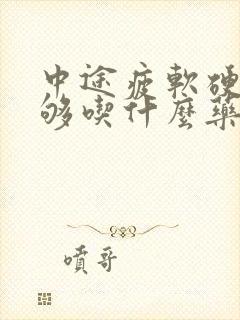 中途疲軟硬
够喫什麼藥
噴哥